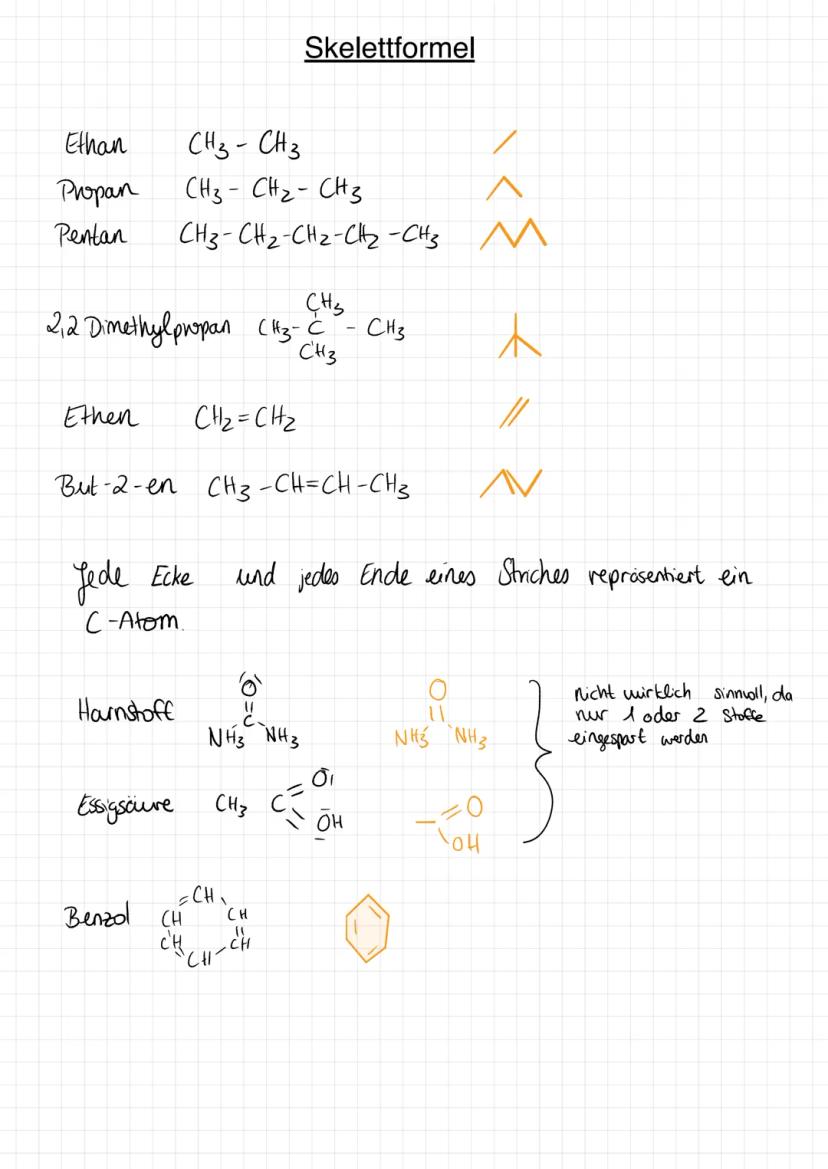 Skelettformel
Ethan CH3 - CH3
Propan CH3 - CH2 - CH3
Pentan CH3 - CH2 - CH2 - CH2 - CH3
CH3
2,2 Dimethylpropan CH3 - C - CH3
CH3
Ethen CH2 = CH2
But-2-en CH3 - CH = CH - CH3
Jede Ecke und jedes Ende eines Striches repräsentiert ein
C-Atom.
O O
Harnstoff C
NH3 NH3 NH3 NH3
nicht wirklich sinnvoll, da
nur 1 oder 2 Stoffe
eingespart werden
Essigsäure CH3 C = O = O
OH OH
Benzol
CH
CH CH
CH CH
CH